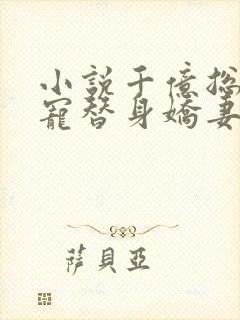 小說千億總
寵替身嬌妻
薩貝亞